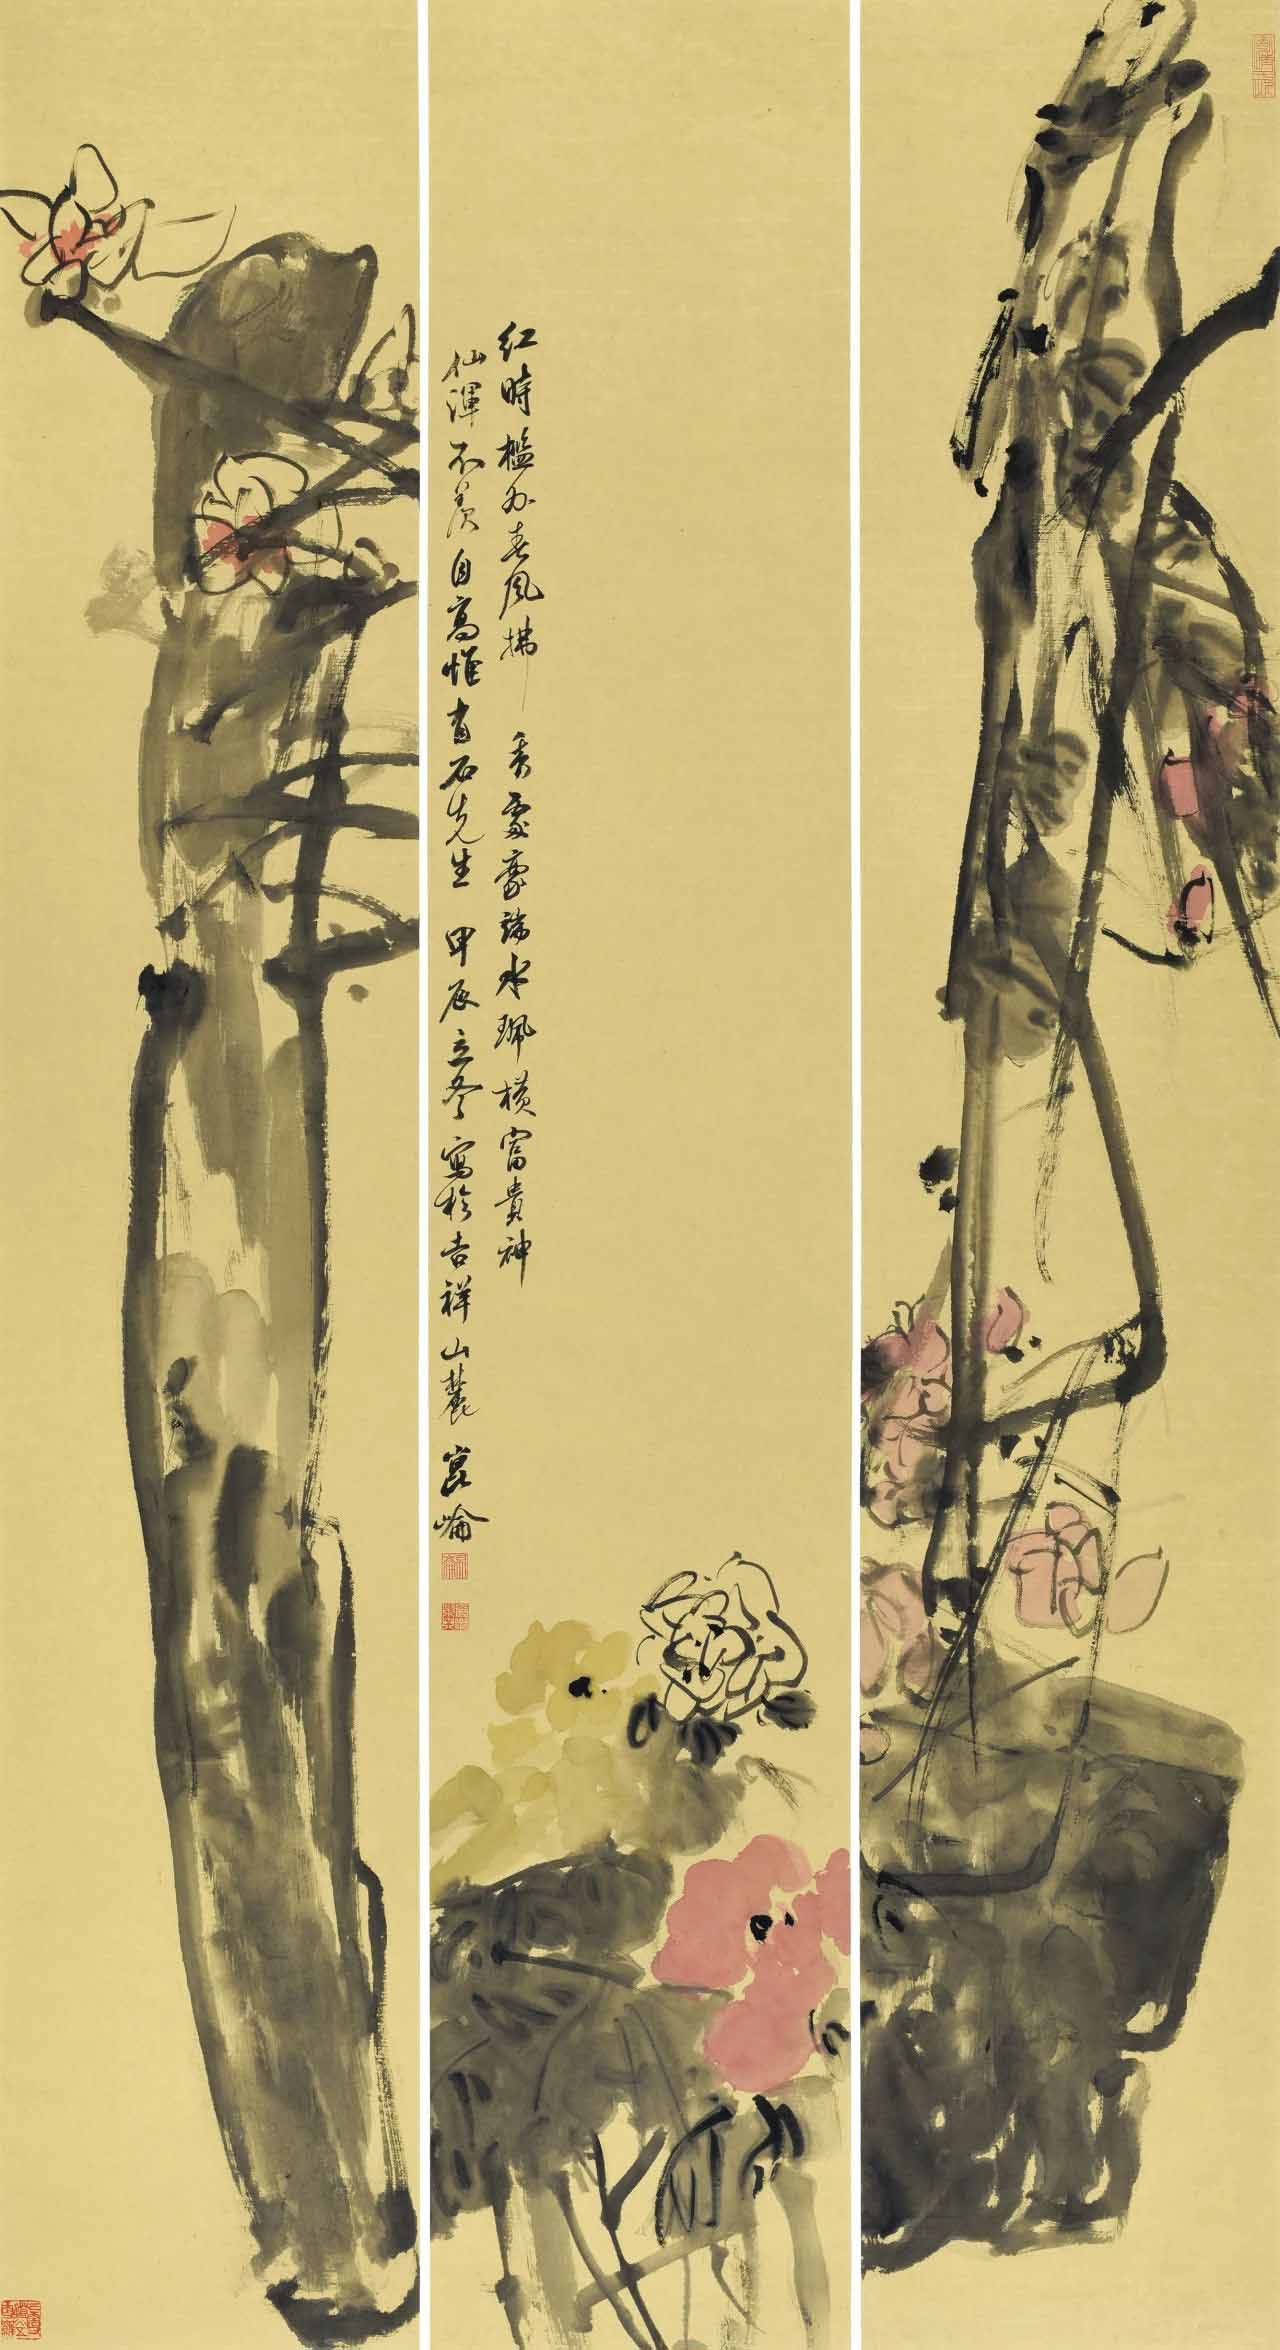 紅時檻外春風拂 香處豪端水珮橫富貴神
仙渾不羨自高惟有石先生 甲辰立冬寫於吉祥山麓 崑崙